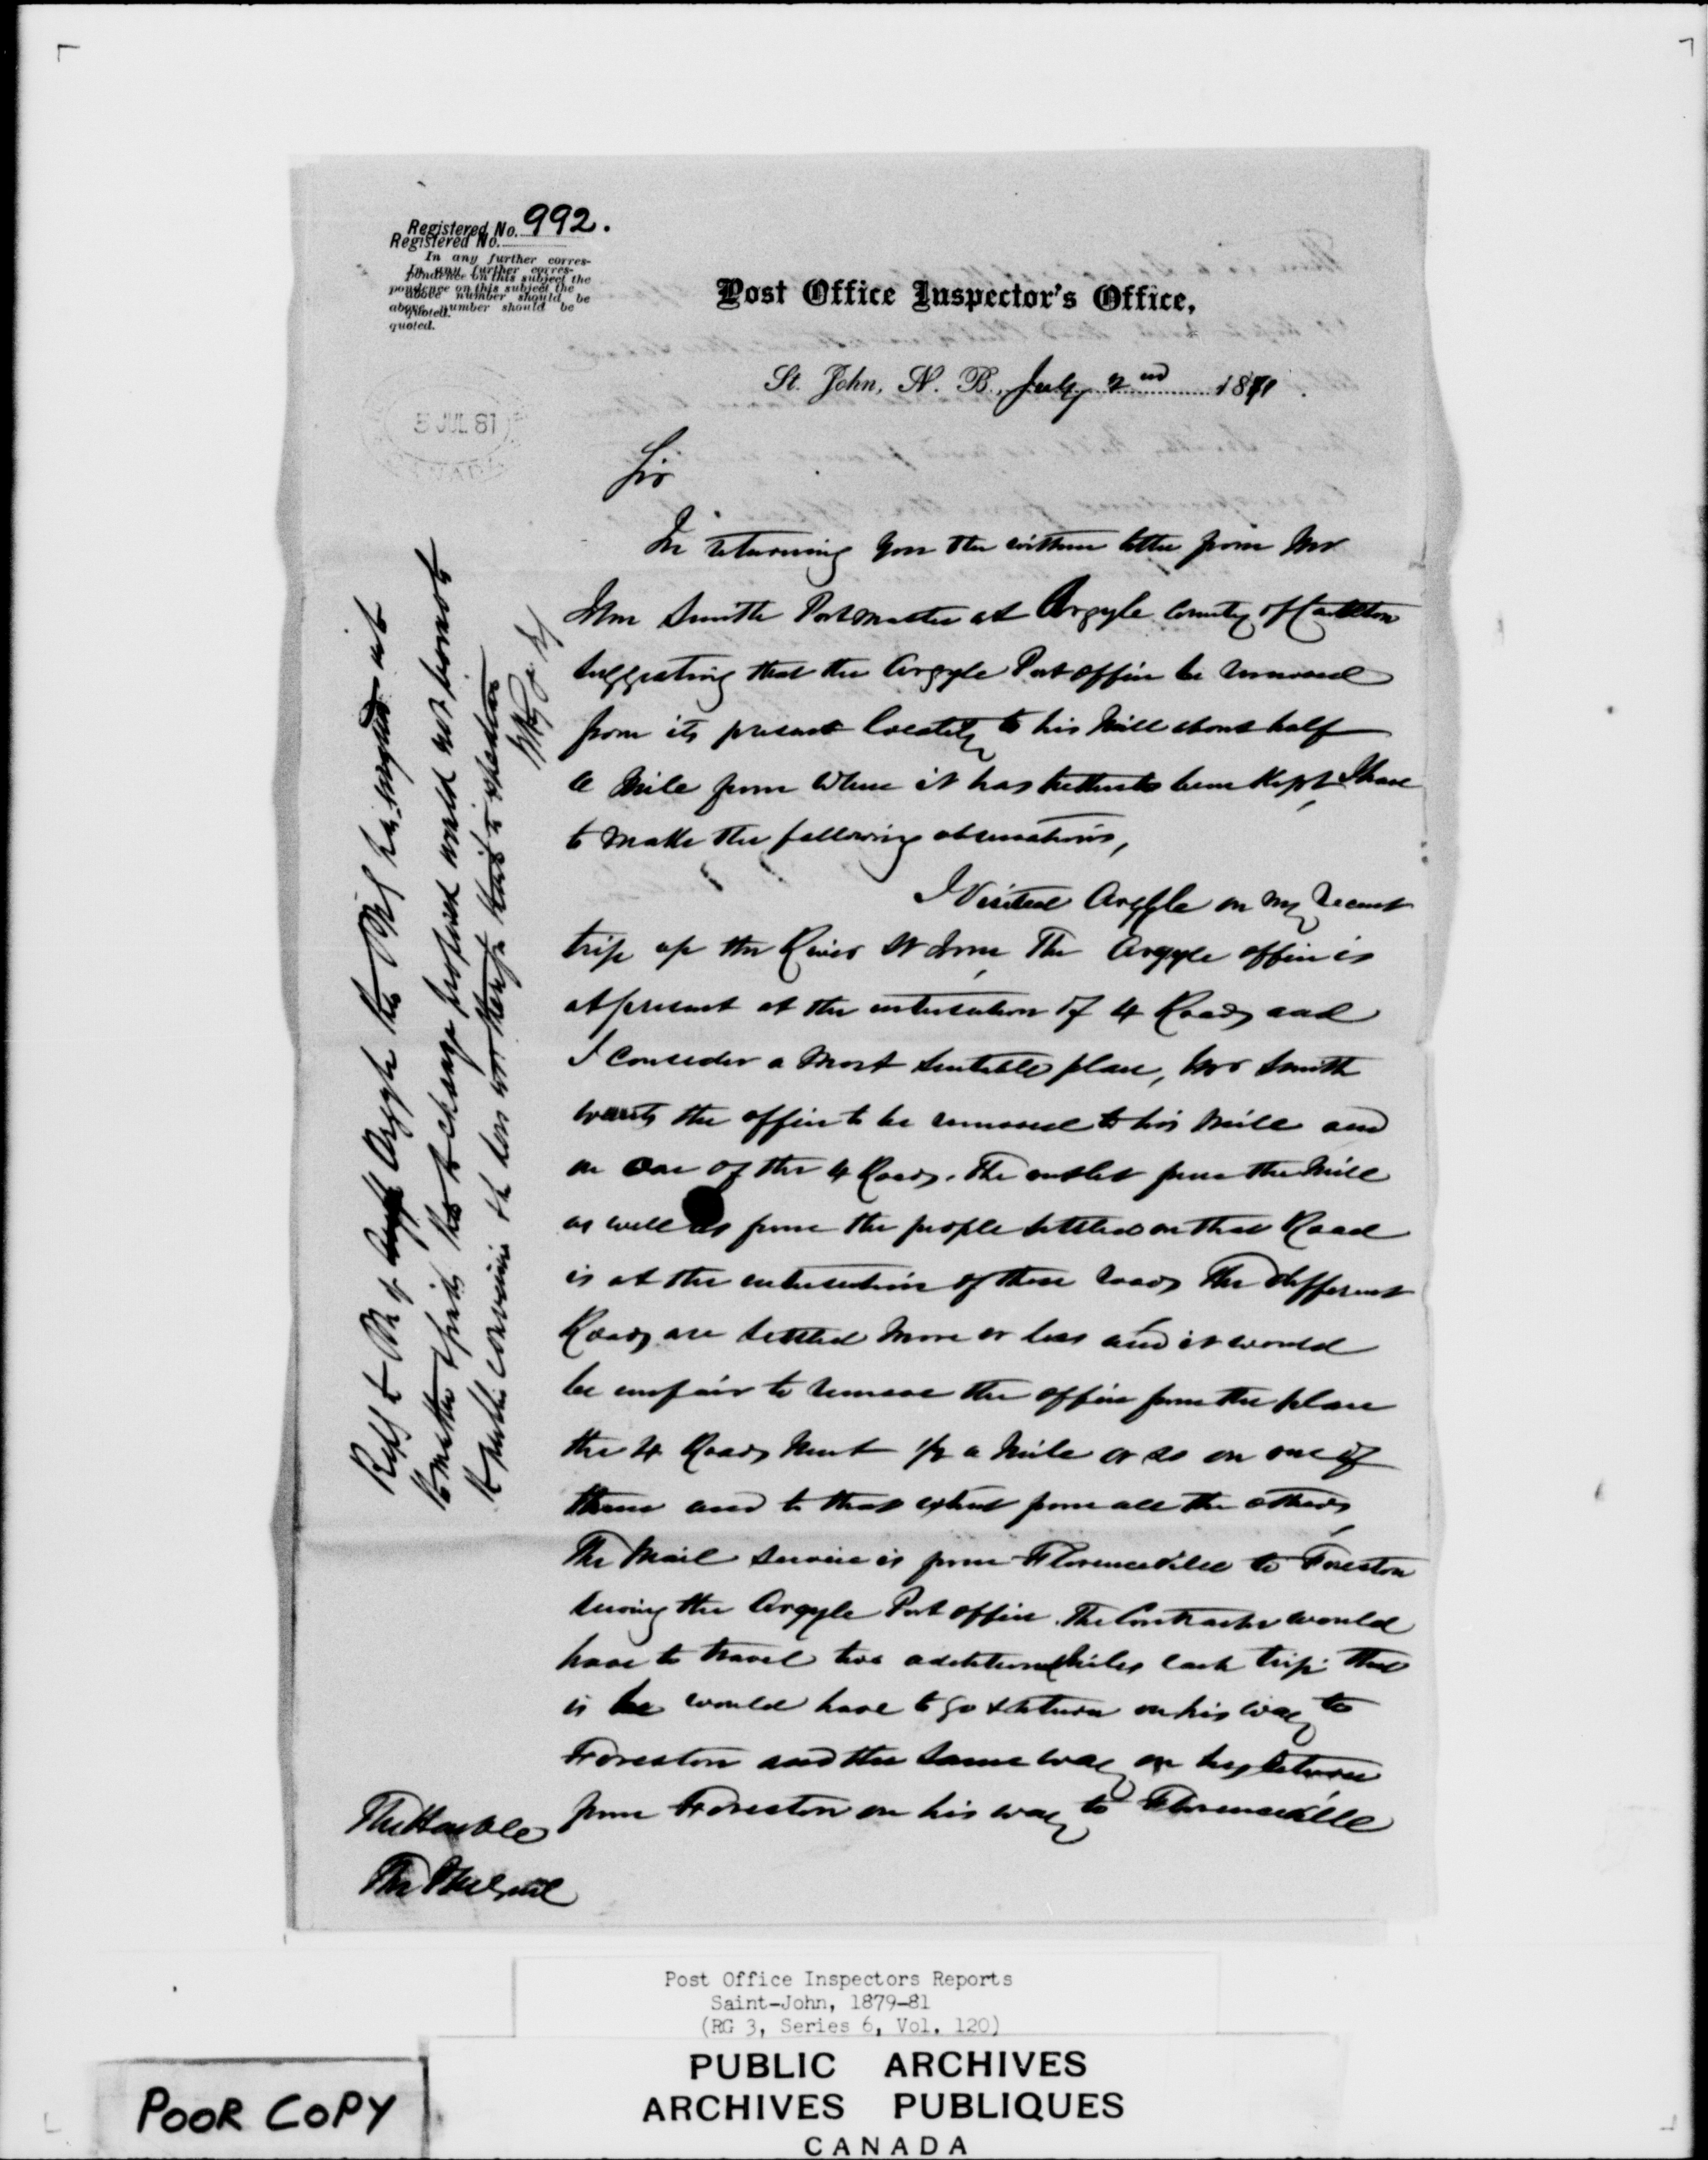 Registered No. 992.
Registered No.
In any further corres-
pondence on this subject the
above number should be
quoted.
Post Office Inspector's Office,
St. John, N. B., July 2nd 1881.
5 JUL 81
CANADA
Sir
In returning you the written letter from Mr
Smith Postmaster at Argyle County of Carleton
suggesting that the Argyle Post office be removed
from its present locality to his Mill about half
a Mile from where it has hitherto been Kept, I have
to make the following observations,
I Visited Argyle on my recent
trip up the River St John, The Argyle office is
at present at the intersection of 4 Roads and
I consider a most suitable place, Mr Smith
wants the office to be removed to his Mill and
on one of the 4 Roads. The outlet from the Mill
as well as from the people settled on that Road
is at the intersection of these roads The different
Roads are settled more or less and it would
be unfair to remove the office from the place
the 4 Roads meet ½ a Mile or so on one of
them and to that extent from all the others,
The Mail Service is from Florenceville to Foreston
serving the Argyle Post office. The Contractor would
have to travel two additional Miles each trip that
is he would have to go & return on his way to
Foreston and the same way on his return
from Foreston on his way to Florenceville
The Honble
The
Argyle the
the change proposed would not
public
Post Office Inspectors Reports
Saint-John, 1879-81
(RG 3, Series 6, Vol. 120)
PUBLIC ARCHIVES
ARCHIVES PUBLIQUES
CANADA
POOR COPY